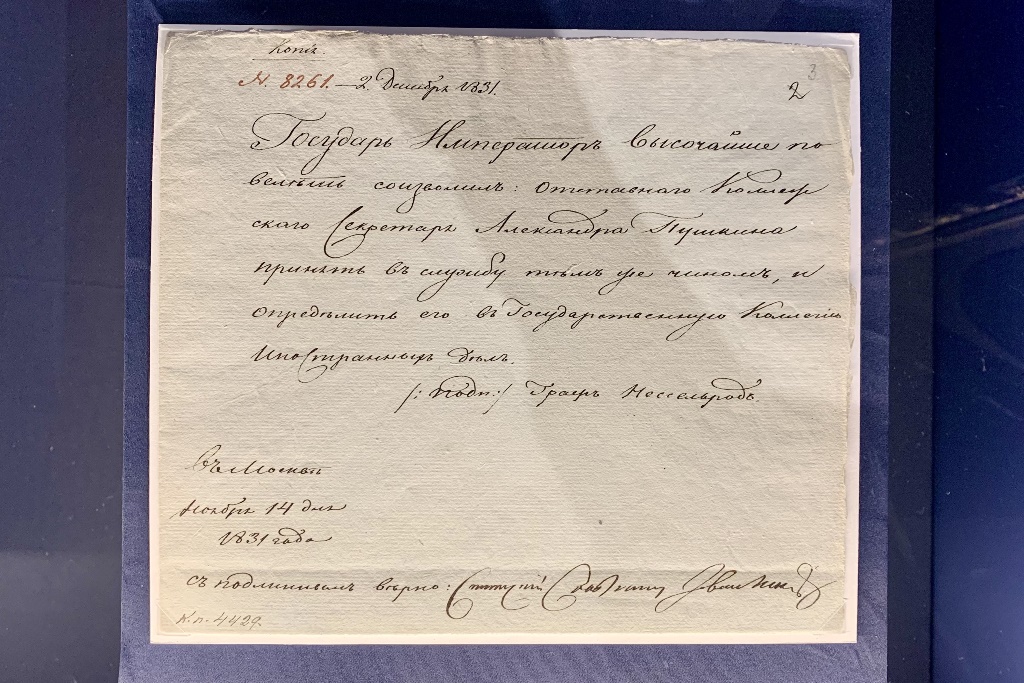 Копія.
N. 8261. — 2. Декабря 1831.
3
2
Государь Императоръ Высочайше по
велѣть соизволилъ: отставнаго Коллеж
скаго Секретаря Александра Пушкина
принять въ службу тѣмъ же чиномъ, и
опредѣлить его въ Государственную Коллегію
Иностранныхъ Дѣлъ.
/: подп: / Графъ Нессельродъ.
Въ Москвѣ
Ноября 14 дня
1831 года
съ подлиннымъ вѣрно: Статскій Совѣтникъ
К.п. 4429.